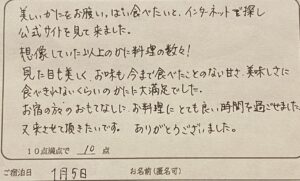 美しいかにをお腹いっぱい食べたいと、インターネットで探し
公式サイトを見て来ました。
想像していた以上のかに料理の数々!
見た目も美しく、お味も今まで食べたことのない甘さ、美味しさに
食べきれないくらいのかにに大満足でした。
お宿の方のおもてなしに、お料理にとても良い時間を過ごせました。
又来させて頂きたいです。 ありがとうございました。
10点満点で 10 点
ご宿泊日 1月5日 お名前(匿名可)